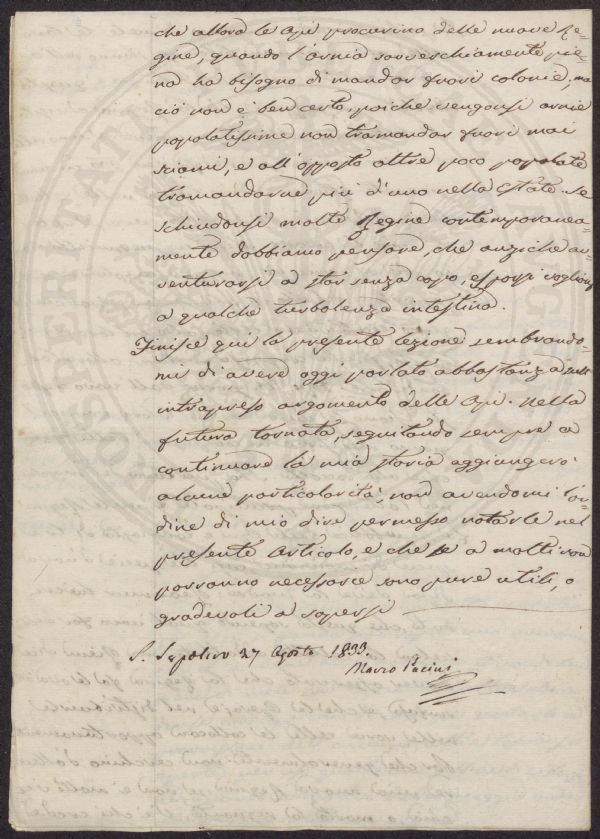 che allora le Api procurino delle nuove Re=
gine, quando l'arnia soverchiamente pie=
na ha bisogno di mandar fuori colonie; ma
ciò non è ben certo, poichè vengonsi arnie
popolatissime non tramandar fuori mai
sciami, e all'opposto altre poco popolate
tramandarne più d'uno nella Estate. Se
schiudonsi molte Regine contemporanea=
mente dobbiamo pensare, che anzichè av=
venturarsi a star senza capo, esporsi vogliono
a qualche turbolenza intestina.
Finisce qui la presente lezione sembrando=
mi di avere oggi parlato abbastanza sull'
intrapreso argomento delle Api. Nella
futura tornata, seguitando sempre a
continuare la mia storia aggiungerò
alcune particolarità, non avendomi l'or=
dine di mio dire permesso notarle nel
presente Articolo, e che se a molti non
parranno necessarie sono pure utili, o
gradevoli a sapersi
S. Sepolcro 27 Agosto 1833.
Marco Pacini